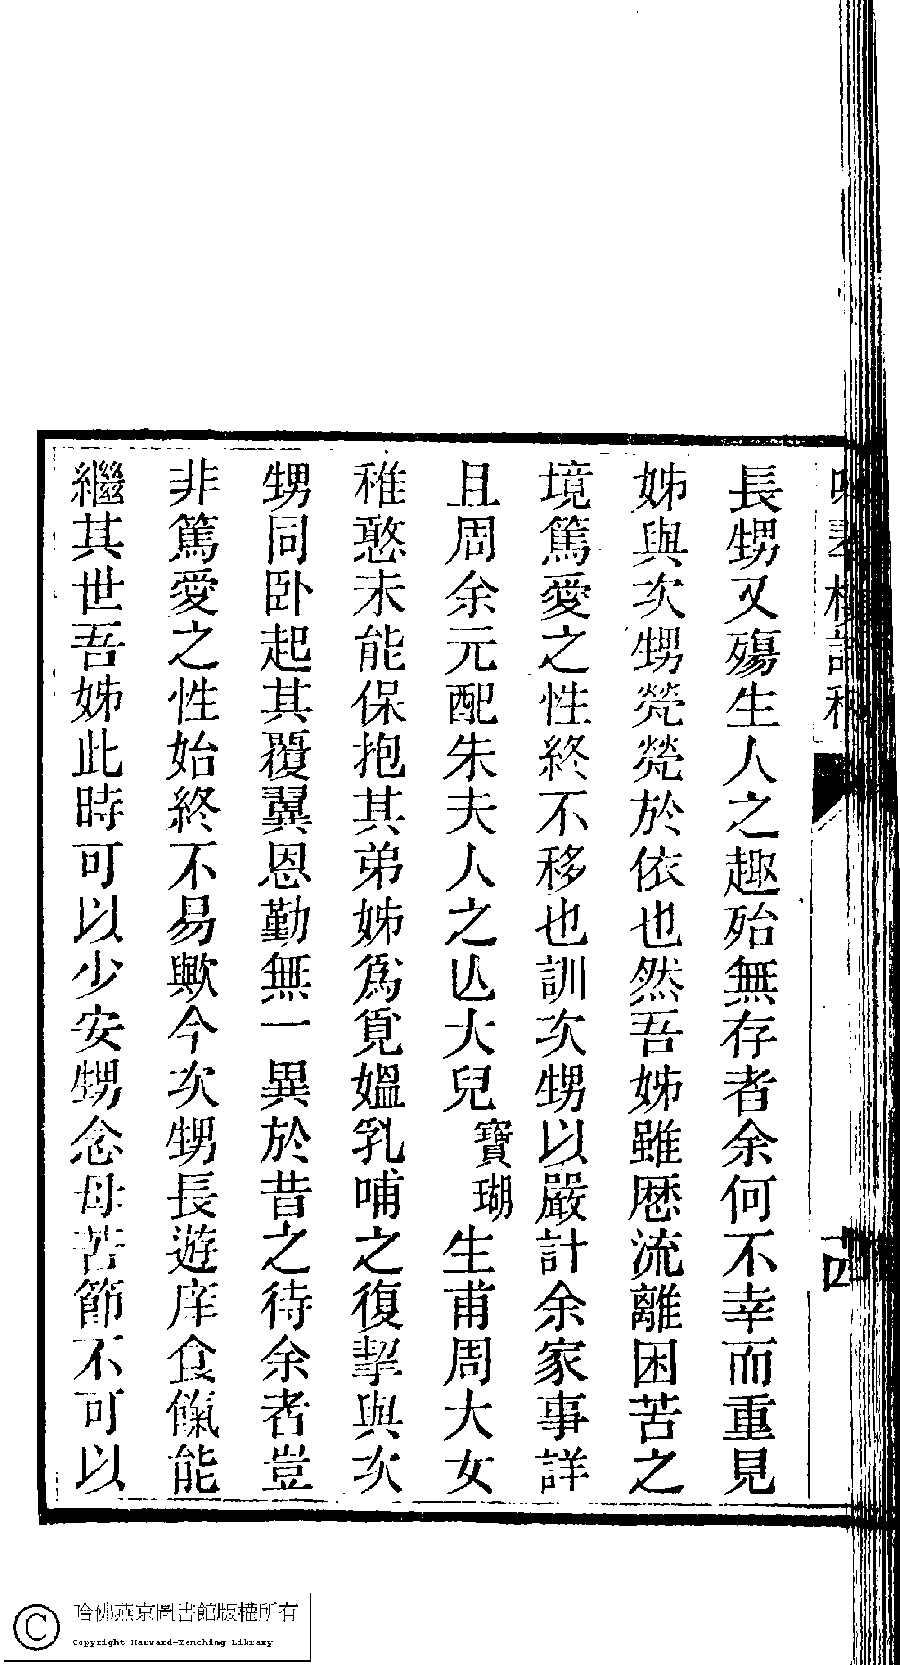 長甥又殤生人之趣殆無存者余何不幸而重見
姊與次甥煢煢於依也然吾姊雖歷流離困苦之
境篤愛之性終不移也訓次甥以嚴計余家事詳
且周余元配朱夫人之亾大兒寶瑚生甫周大女
稚憨未能保抱其弟姊爲覓媼乳哺之復挈與次
甥同卧起其覆翼恩勤無一異於昔之待余者豈
非篤愛之性始終不易歟今次甥長遊庠食餼能
繼其世吾姊此時可以少安甥念母苦節不可以
哈佛燕京圖書館版權所有
Copyright Harvard-Yenching Library